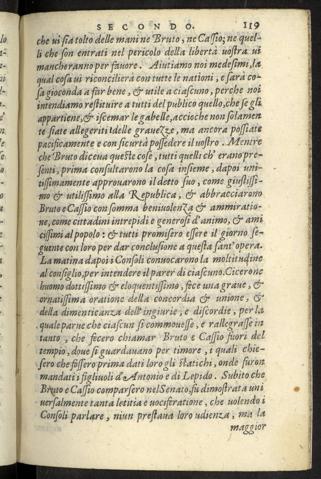 SECONDO. 119
che ui sia tolto delle mani ne Bruto, ne Cassio; ne quel-
li che son entrati nel pericolo della libertà uostra ui
mancheranno per fauore. Aiutiamo noi medesimi, la
qual cosa ui riconcilierà con tutte le nationi, e sarà co-
sa gioconda a far bene, & utile a ciascuno, perche noi
intendiamo restituire a tutti del publico quello, che se gli
appartiene, & iscemar le gabelle, accioche non solamen
te siate allegeriti delle grauezze, ma ancora possiate
pacificamente e con sicurtà possedere il uostro. Mentre
che Bruto diceua queste cose, tutti quelli ch' erano pre-
senti, prima consultarono la cosa insieme, dapoi uni-
tissimamente approuarono il detto suo, come giustissi-
mo & utilissimo alla Republica, & abbracciarono
Bruto e Cassio con somma beniuolenza & ammiratio-
ne, come cittadini intrepidi e generosi d'animo, & ami
cissimi al popolo: & tutti promisero essere il giorno se-
guente con loro per dar conclusione a questa sant' opera.
La matina dapoi i Consoli conuocarono la moltitudine
al consiglio, per intendere il parer di ciascuno. Cicerone
huomo dottissimo & eloquentissimo, fece una graue, &
ornatissima oratione della concordia & unione, &
della dimenticanza dell' ingiurie, e discordie, per la
quale parue che ciascun si commouesse, e rallegrasse in
tanto, che fecero chiamar Bruto e Cassio fuori del
tempio, doue si guardauano per timore, i quali chie-
sero che fossero prima dati loro gli statichi, onde furon
mandati i figliuoli d'Antonio e di Lepido. Subito che
Bruto e Cassio comparsero nel Senato, fu dimostrata uni
uersalmente tanta letitia e uociferatione, che uolendo i
Consoli parlare, niun prestaua loro udienza, ma la
maggior